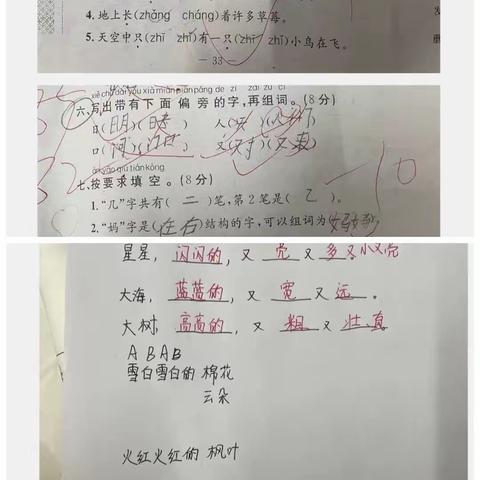 4. 地上长(zhǎng cháng)着许多草莓。
5. 天空中只(zhī zhǐ)有一只(zhī zhǐ)小鸟在飞。
— 33 —
xiě chū dài yǒu xià miàn piān páng de zì zài zǔ cí
六、写出带有下面偏旁的字,再组词。(8分)
日(明)( ) 人( )( )
口( )( ) 又( )( )
àn yāo qiú tián kòng
七、按要求填空。(8分)
1. “几”字共有( 二 )笔,第2笔是( 乙 )。
2. “妈”字是(左右)结构的字,可以组词为( )
-10
星星, 闪闪的, 又 亮 又 多 又小又亮
大海, 蓝蓝的, 又 宽 又 远 。
大树, 高高的, 又 粗 又 壮、直
ABAB
雪白雪白的 棉花
云朵
火红火红的 枫叶